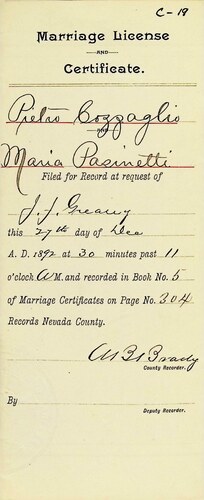 C-18
Marriage License
AND
Certificate.
Pietro Cozzaglio
AND
Maria Pasinetti
Filed for Record at request of
J. J. Greany
this 27th day of Dec
A. D. 1892 at 30 minutes past 11
o'clock A M. and recorded in Book No. 5
of Marriage Certificates on Page No. 304
Records Nevada County.
Brady
County Recorder.
By
Deputy Recorder.